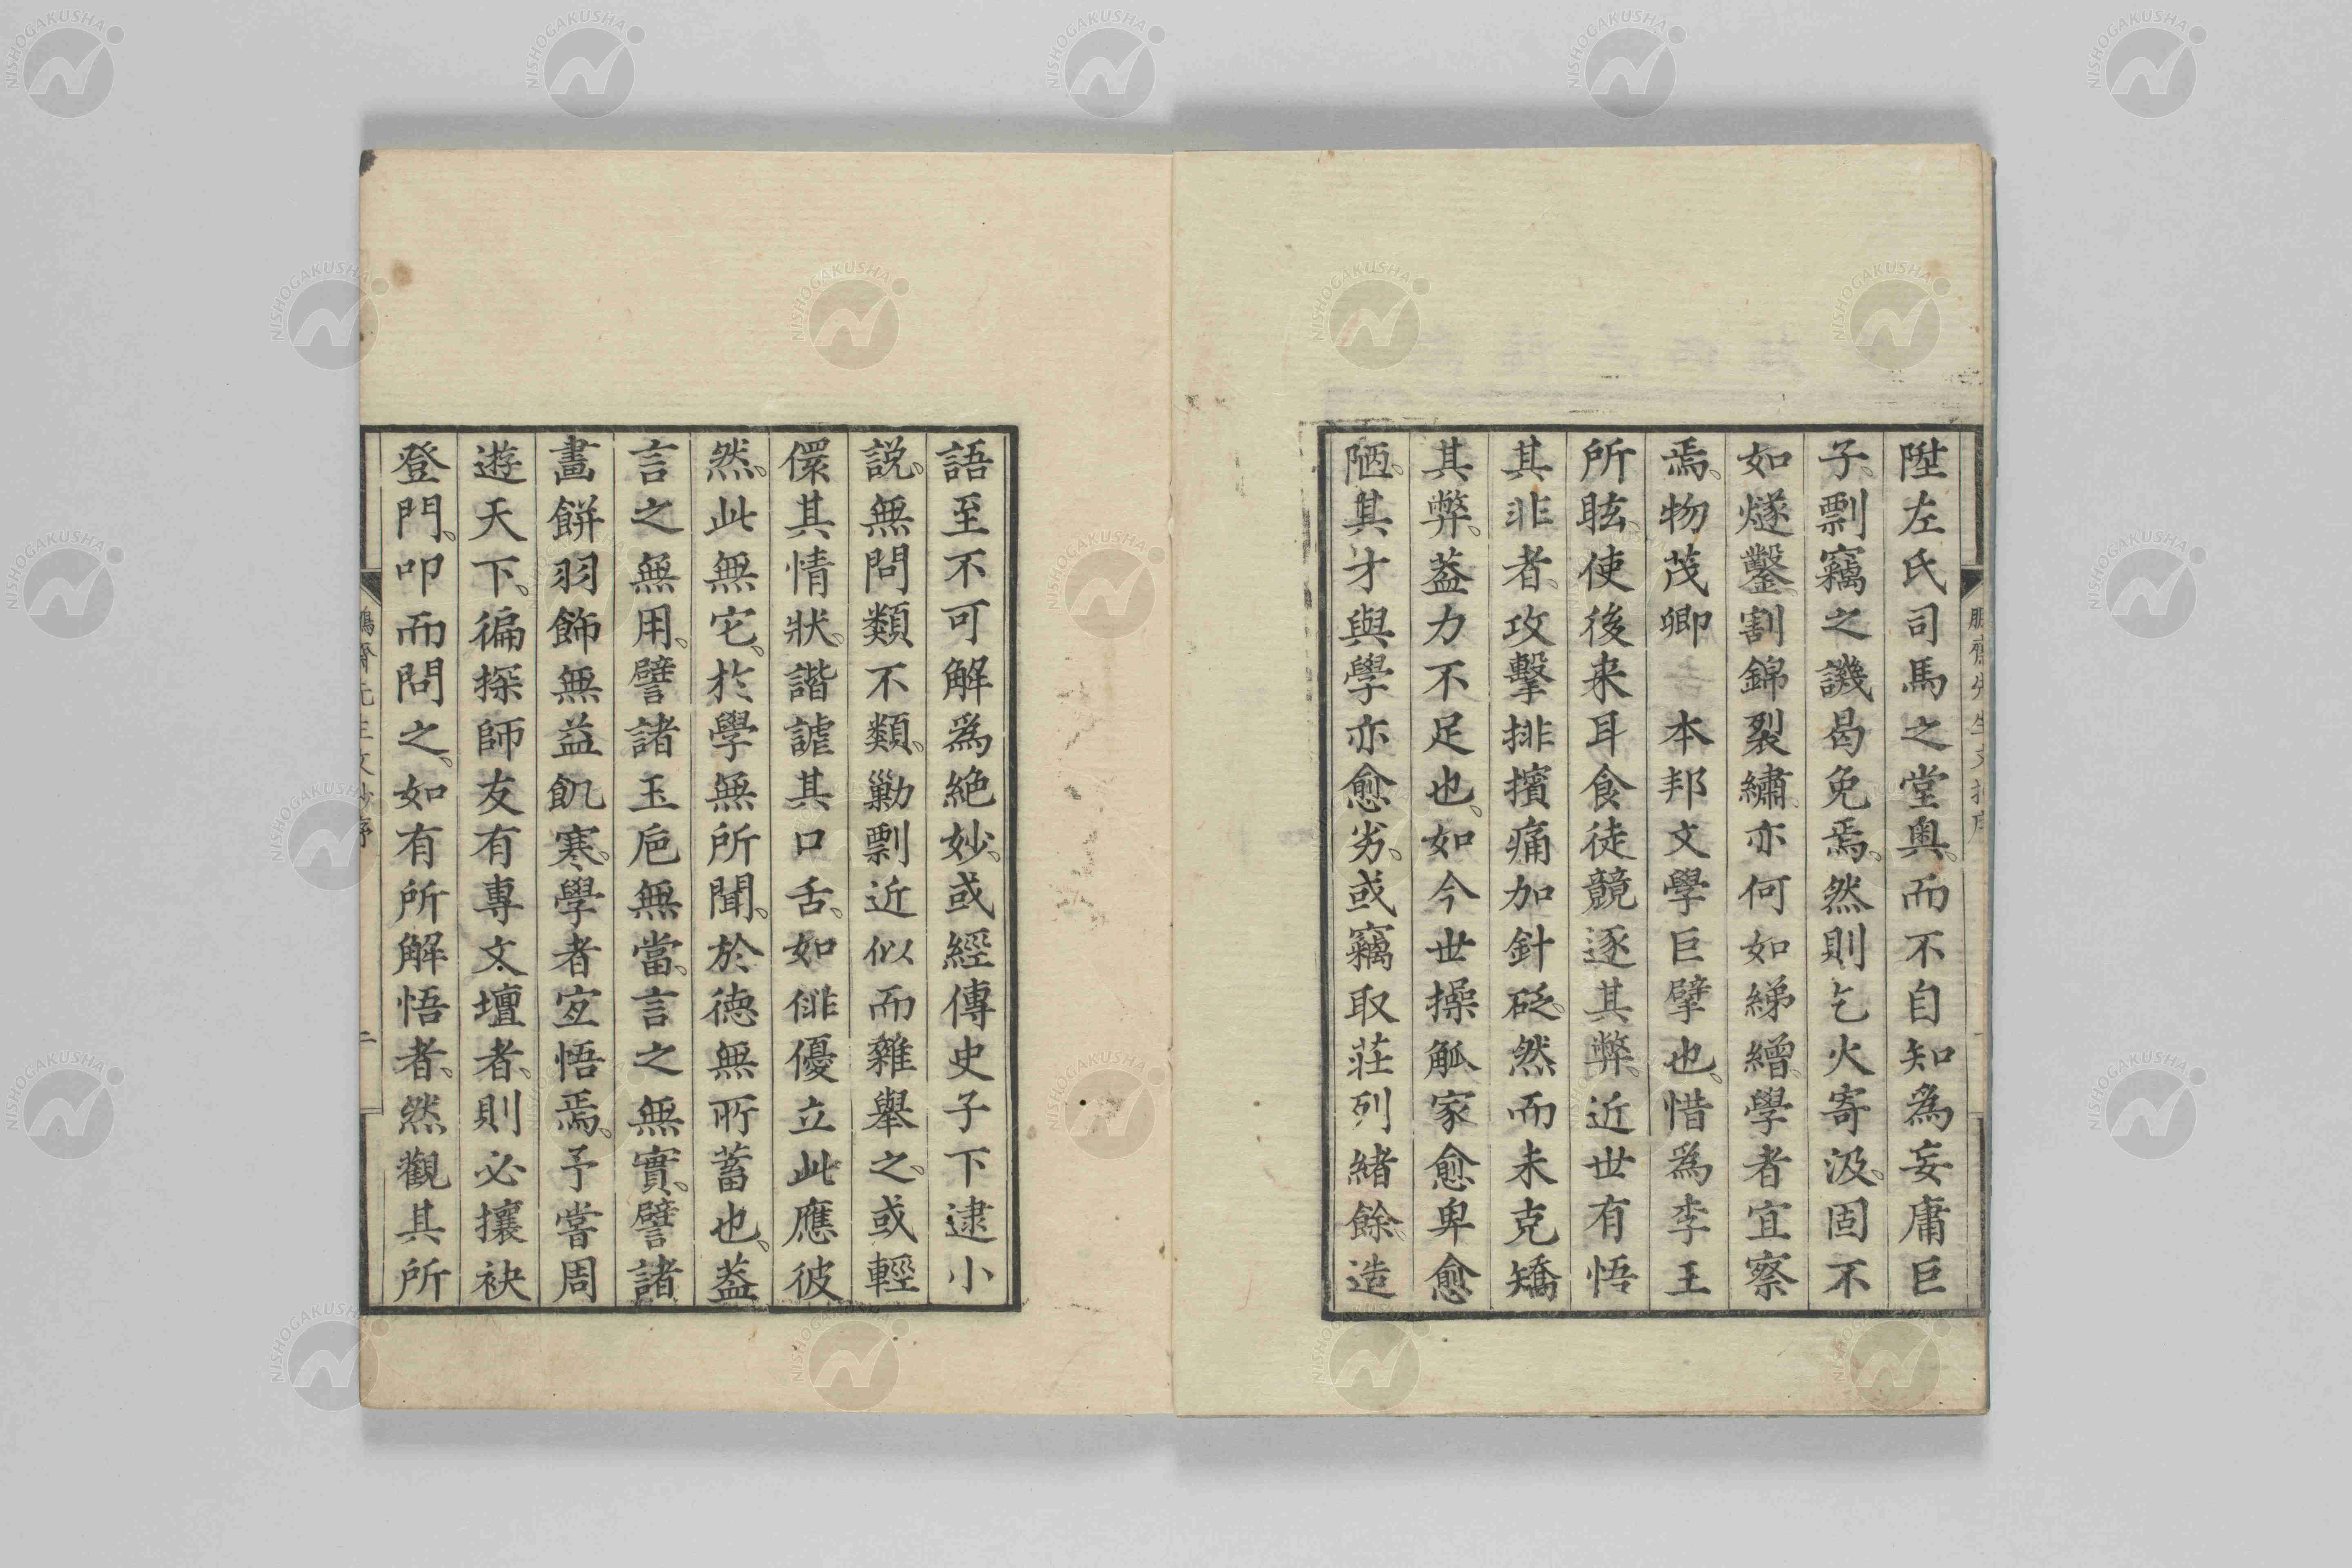 陞左氏司馬之堂奥、而不自知爲妄庸巨
子、剽竊之譏曷免焉、然則乞火寄汲、固不
如燧鑿、割錦裂繡、亦何如綈繒、學者宜察
焉、物茂卿　本邦文學巨擘也、惜爲李王
所眩、使後来耳食徒競逐其弊、近世有悟
其非者、攻擊排擯痛加針砭、然而未克矯
其弊、葢力不足也、如今世操觚家愈卑愈
陋、其才與學亦愈劣、或竊取莊列緒餘、造
語至不可解爲絶妙、或經傳史子下逮小
説、無問類不類、勦剽近似而雜舉之、或輕
儇其情狀、諧謔其口舌、如俳優立此應彼
然、此無它、於學無所聞、於徳無所蓄也、葢
言之無用、譬諸玉巵無當、言之無實、譬諸
畫餅羽飾無益飢寒、學者宜悟焉、予嘗周
遊天下、徧探師友有專文壇者、則必攘袂
登門、叩而問之、如有所解悟者、然觀其所
鵬齋先生文抄序
二
NISHOGAKUSHA